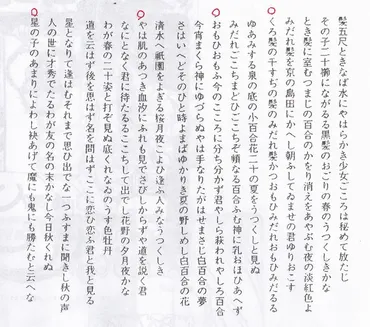 髪五尺ときなば水にやはらかき少女ごころは秘めて放たじ
その子二十櫛にながるる黒髪のおごりの春のうつくしきかな
とき髪に室むつまじの百合のかをり消えをあやぶむ夜の淡紅色よ
みだれ髪を京の島田にかへし朝ふしてゐませの君ゆりおこす
くろ髪の千すぢの髪のみだれ髪かつおもひみだれおもひみだるる
ゆあみする泉の底の小百合花二十の夏をうつくしと見ぬ
みだれごこちまどひごこちぞ頻なる百合ふむ神に乳おほひあへず
おもひおもふ今のこころに分ち分かず君やしら萩われやしろ百合
今宵まくら神にゆづらぬやは手なりたがはせまさじ白百合の夢
さはいへどそのひと時よまばゆかりき夏の野しめし白百合の花
清水へ祇園をよぎる桜月夜こよひ逢ふ人みなうつくしき
やは肌のあつき血汐にふれも見でさびしからずや道を説く君
なにとなく君に待たるるここちして出でし花野の夕月夜かな
わが春の二十姿と打ぞ見ぬ底くれなゐのうす色牡丹
道を云はず後を思はず名を問はずここに恋ひ恋ふ君と我と見る
星となりて逢はむそれまで思ひ出でな一つふすまに聞きし秋の声
人の世に才秀でたるわが友の名の末かなし今日秋くれぬ
星の子のあまりによわし袂あげて魔にも鬼にも勝たむと云へな